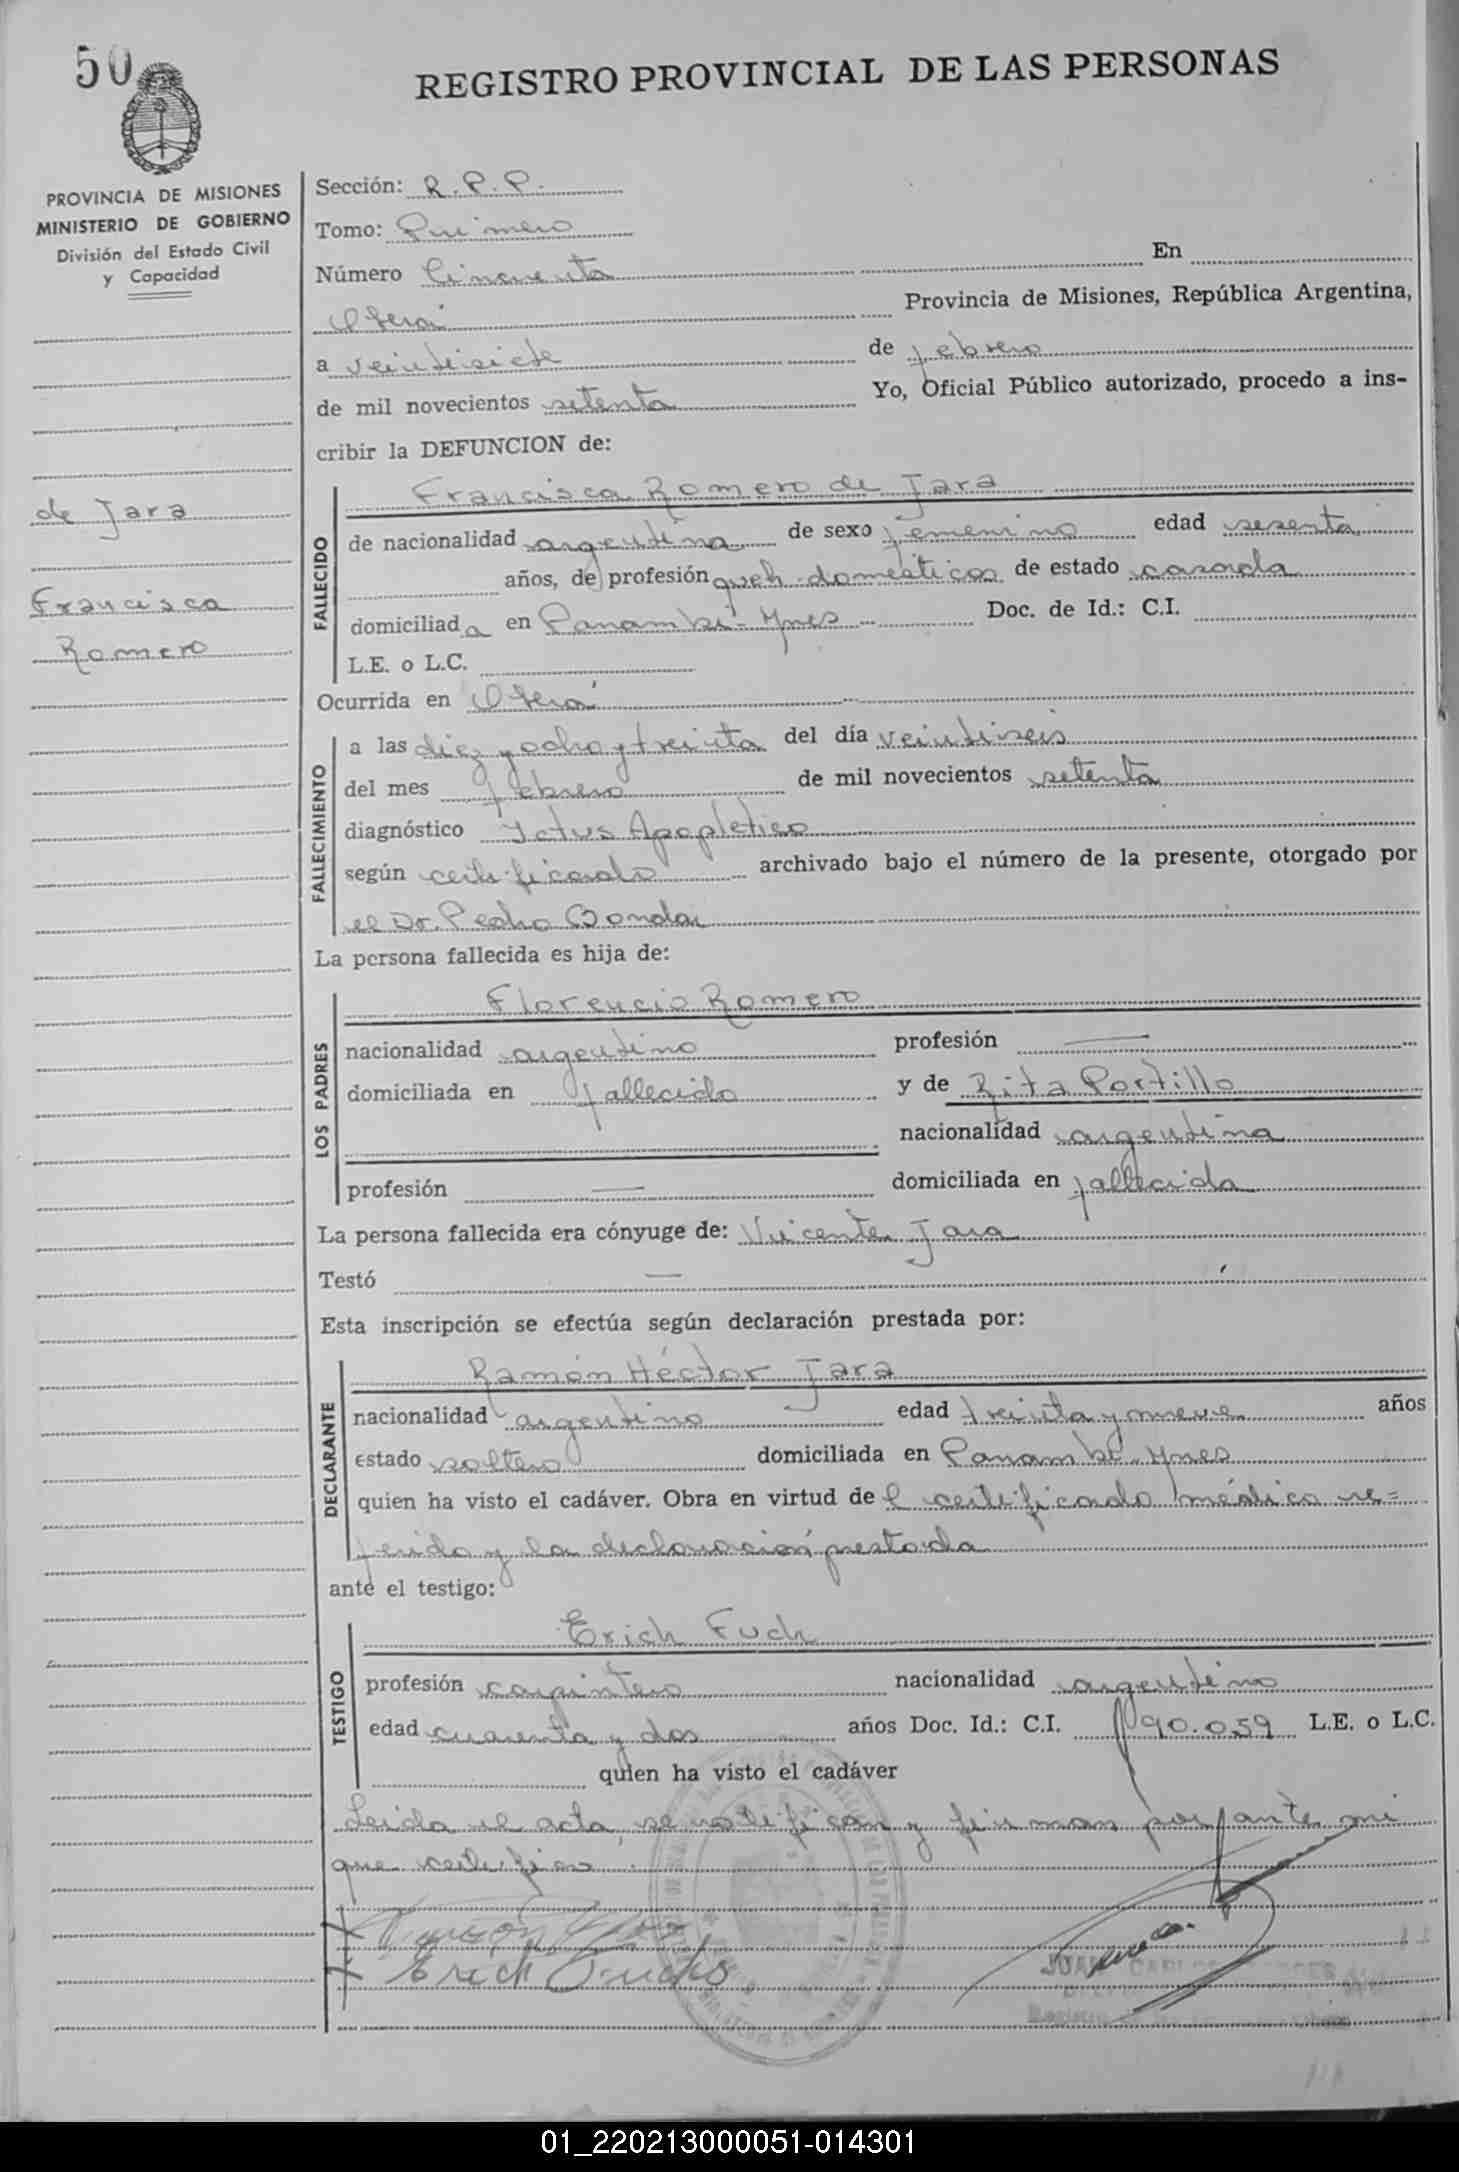 50
REGISTRO PROVINCIAL DE LAS PERSONAS
PROVINCIA DE MISIONES
MINISTERIO DE GOBIERNO
División del Estado Civil
y Capacidad
de Jara
Francisca
Romero
Sección: R.P.P.
Tomo: Primero
Número Cincuenta En
Oberá Provincia de Misiones, República Argentina,
a veintisiete de febrero
de mil novecientos setenta Yo, Oficial Público autorizado, procedo a ins-
cribir la DEFUNCION de:
FALLECIDO
Francisca Romero de Jara
de nacionalidad argentina de sexo femenino edad sesenta
años, de profesión queh. domésticos de estado casada
domiciliada en Panambí - Doc. de Id.: C.I.
L.E. o L.C.
Ocurrida en Oberá
FALLECIMIENTO
a las diez y ocho y treinta del día veintiseis
del mes febrero de mil novecientos setenta
diagnóstico Ictus Apopletico
según certificado archivado bajo el número de la presente, otorgado por
el Dr. Pedro Bondar
La persona fallecida es hija de:
LOS PADRES
Florencio Romero
nacionalidad argentino profesión —
domiciliada en fallecido y de Rita Portillo
nacionalidad argentina
profesión — domiciliada en fallecida
La persona fallecida era cónyuge de: Vicente Jara
Testó —
Esta inscripción se efectúa según declaración prestada por:
DECLARANTE
Ramón Héctor Jara
nacionalidad argentino edad treinta y nueve años
estado soltero domiciliada en Panambí -
quien ha visto el cadáver. Obra en virtud del certificado médico re=
ferido y la declaración prestada
ante el testigo:
TESTIGO
Erich Fuch
profesión carpintero nacionalidad argentino
edad cuarenta y dos años Doc. Id.: C.I. 90.059 L.E. o L.C.
quien ha visto el cadáver
Leida el acta, se ratifican y firman por ante mi
que certifico.
Erich Fuchs
JUAN CARLOS
01_220213000051-014301